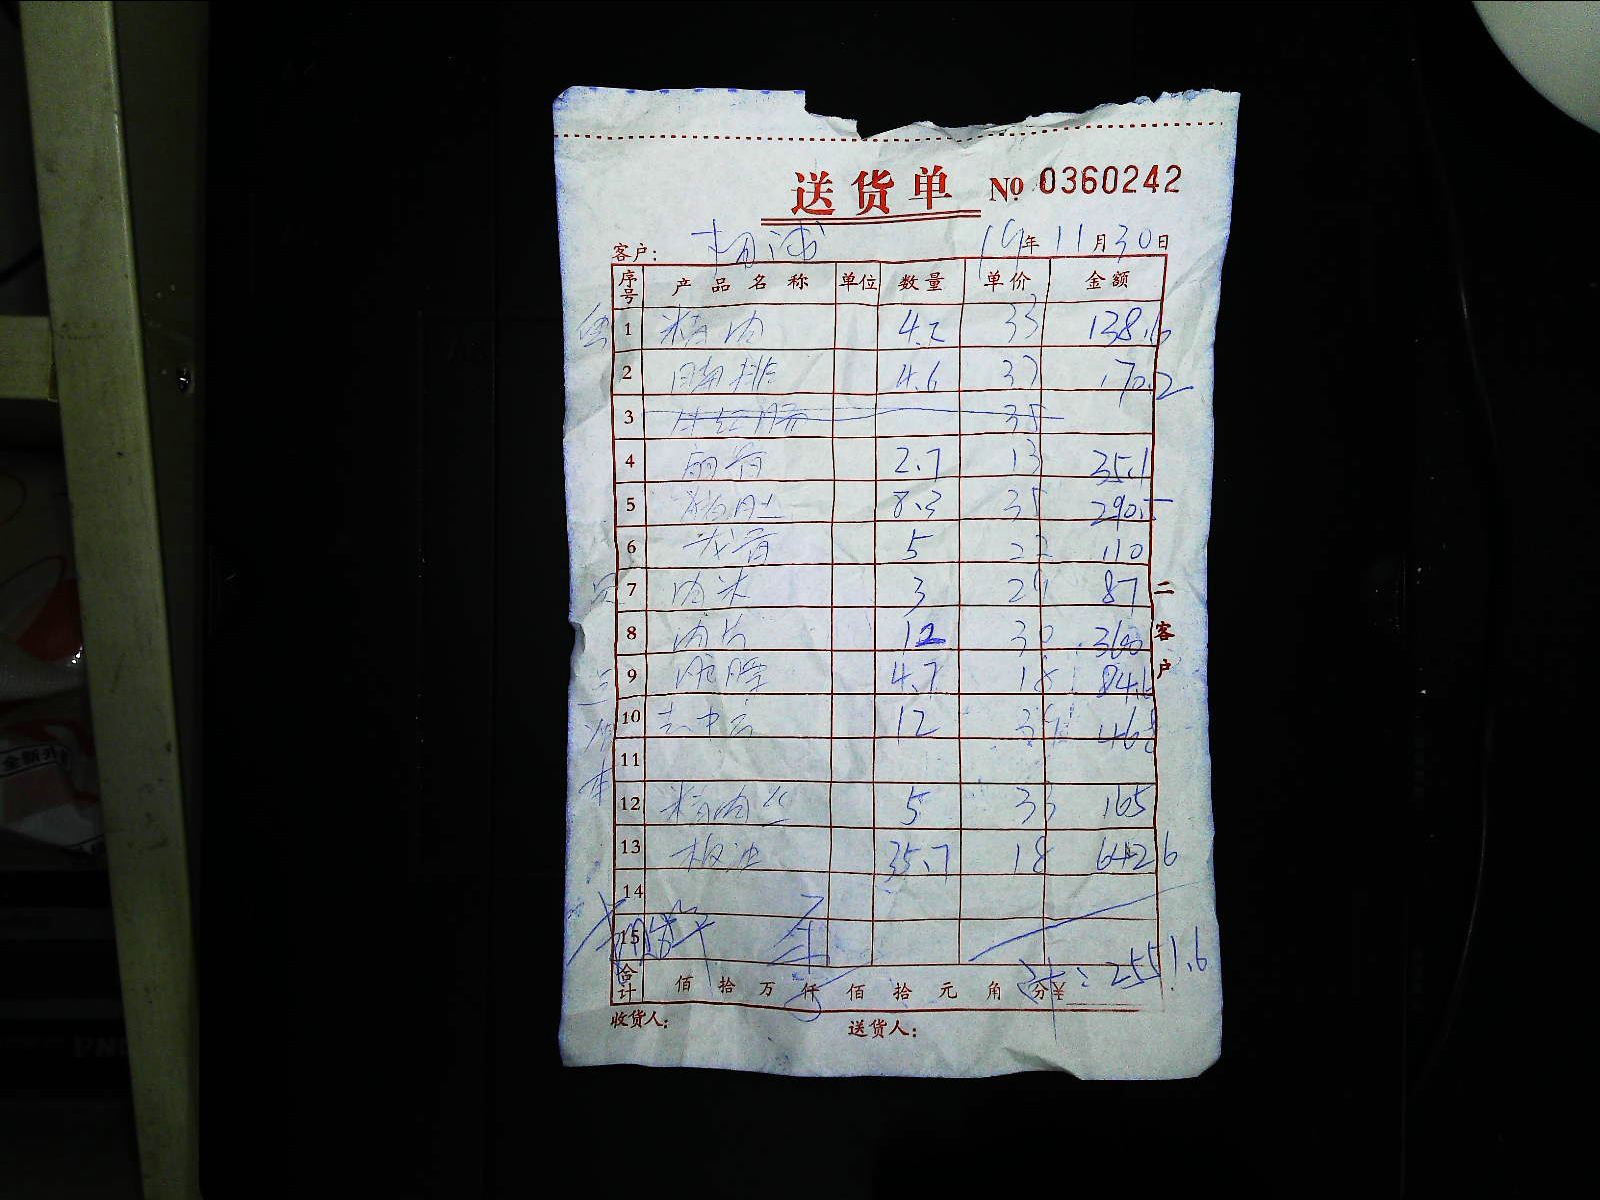 送货单 № 0360242
客户： 19年11月30日
序号 产品名称 单位 数量 单价 金额
1 精肉 4.2 33 138.6
2 腩排 4.6 37 170.2
3 35
4 2.7 13 35.1
5 猪肚 8.3 35 290.5
6 龙骨 5 22 110
7 肉米 3 29 87
8 肉片 12 30 360
9 4.7 18 84.6
10 12 39 468
11
12 精肉丝 5 33 165
13 板油 35.7 18 642.6
14
15
合计 佰拾万仟佰拾元角分¥ 计：2551.6
收货人： 送货人：
二客户
全新升